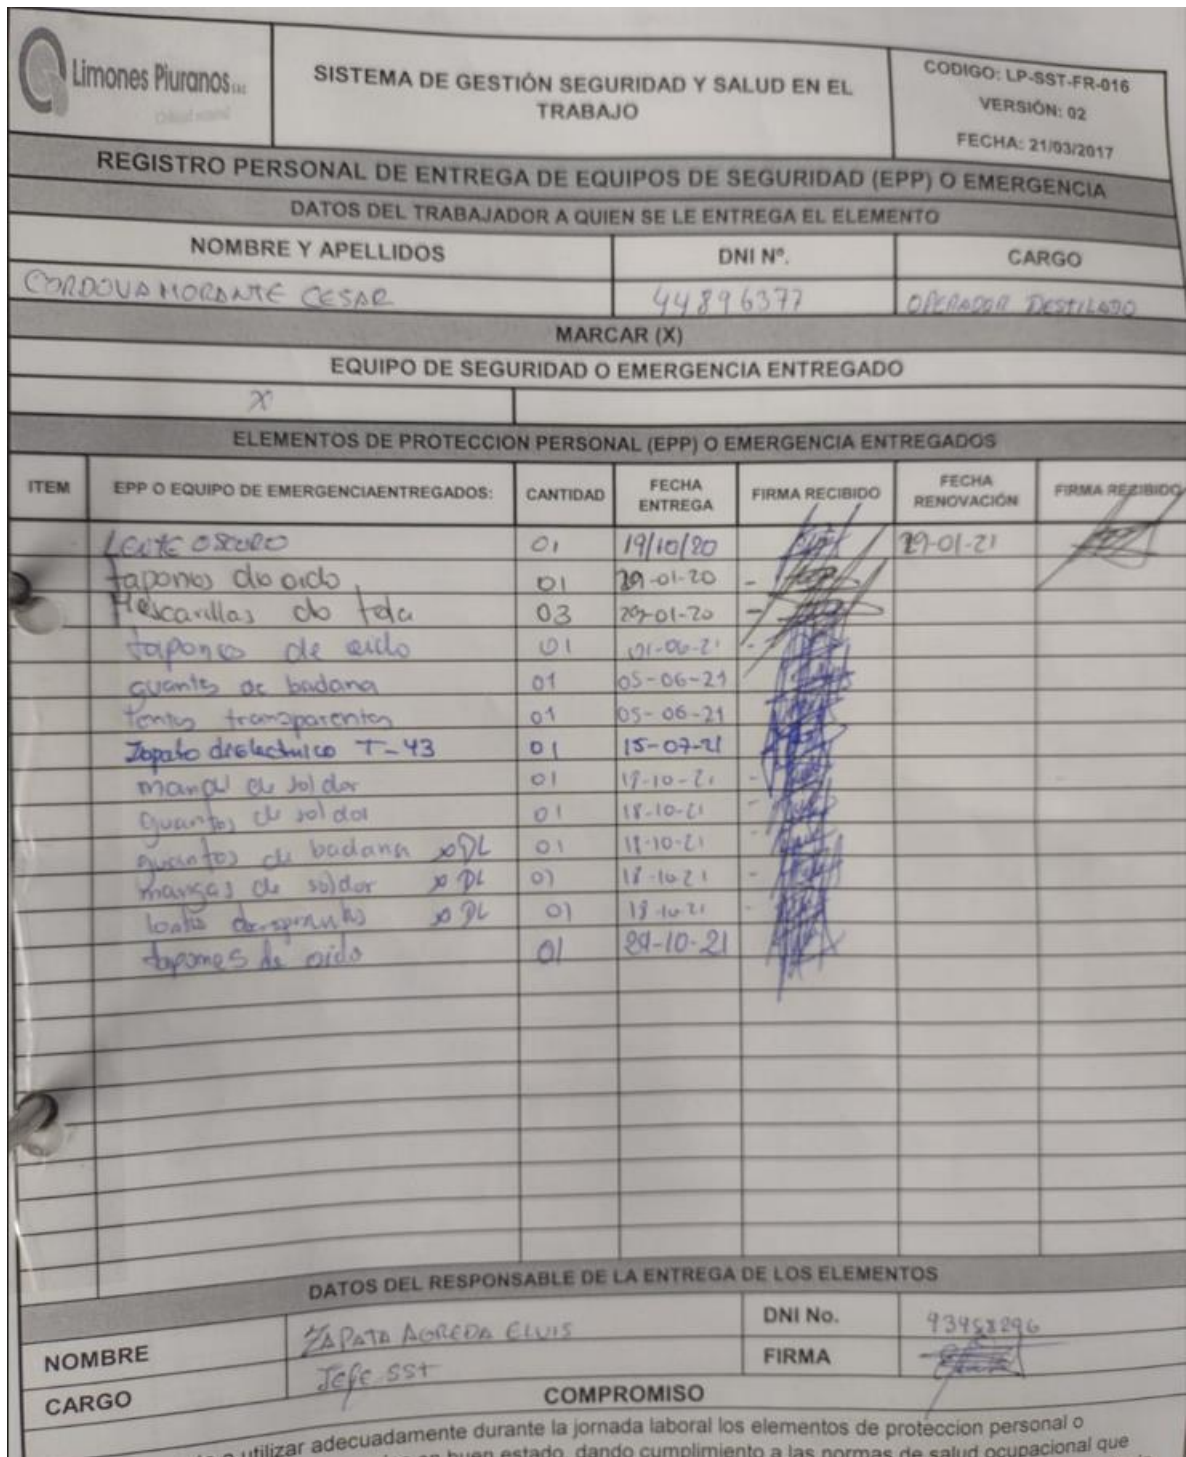 Limones Piuranos S.A.C.
SISTEMA DE GESTIÓN SEGURIDAD Y SALUD EN EL
TRABAJO
CODIGO: LP-SST-FR-016
VERSIÓN: 02
FECHA: 21/03/2017
REGISTRO PERSONAL DE ENTREGA DE EQUIPOS DE SEGURIDAD (EPP) O EMERGENCIA
DATOS DEL TRABAJADOR A QUIEN SE LE ENTREGA EL ELEMENTO
NOMBRE Y APELLIDOS DNI Nº. CARGO
CORDOVA MORANTE CESAR 44896377 OPERADOR DESTILADO
MARCAR (X)
EQUIPO DE SEGURIDAD O EMERGENCIA ENTREGADO
X
ELEMENTOS DE PROTECCION PERSONAL (EPP) O EMERGENCIA ENTREGADOS
ITEM EPP O EQUIPO DE EMERGENCIAENTREGADOS: CANTIDAD FECHA ENTREGA FIRMA RECIBIDO FECHA RENOVACIÓN FIRMA RECIBIDO
LENTE OSCURO 01 19/10/20 29-01-21
tapones de oido 01 29-01-20
Mascarillas de tela 03 29-01-20
tapones de oido 01 01-06-21
guantes de badana 01 05-06-21
lentes transparentes 01 05-06-21
Zapato dielectrico T-43 01 15-07-21
mandil de soldar 01 18-10-21
guantes de soldar 01 18-10-21
guantes de badana 01 18-10-21
mangas de soldar 01 18-10-21
01 18-10-21
tapones de oido 01 29-10-21
DATOS DEL RESPONSABLE DE LA ENTREGA DE LOS ELEMENTOS
NOMBRE ZAPATA AGREDA ELVIS DNI No.
CARGO Jefe SST FIRMA
COMPROMISO
utilizar adecuadamente durante la jornada laboral los elementos de proteccion personal o
buen estado, dando cumplimiento a las normas de salud ocupacional que